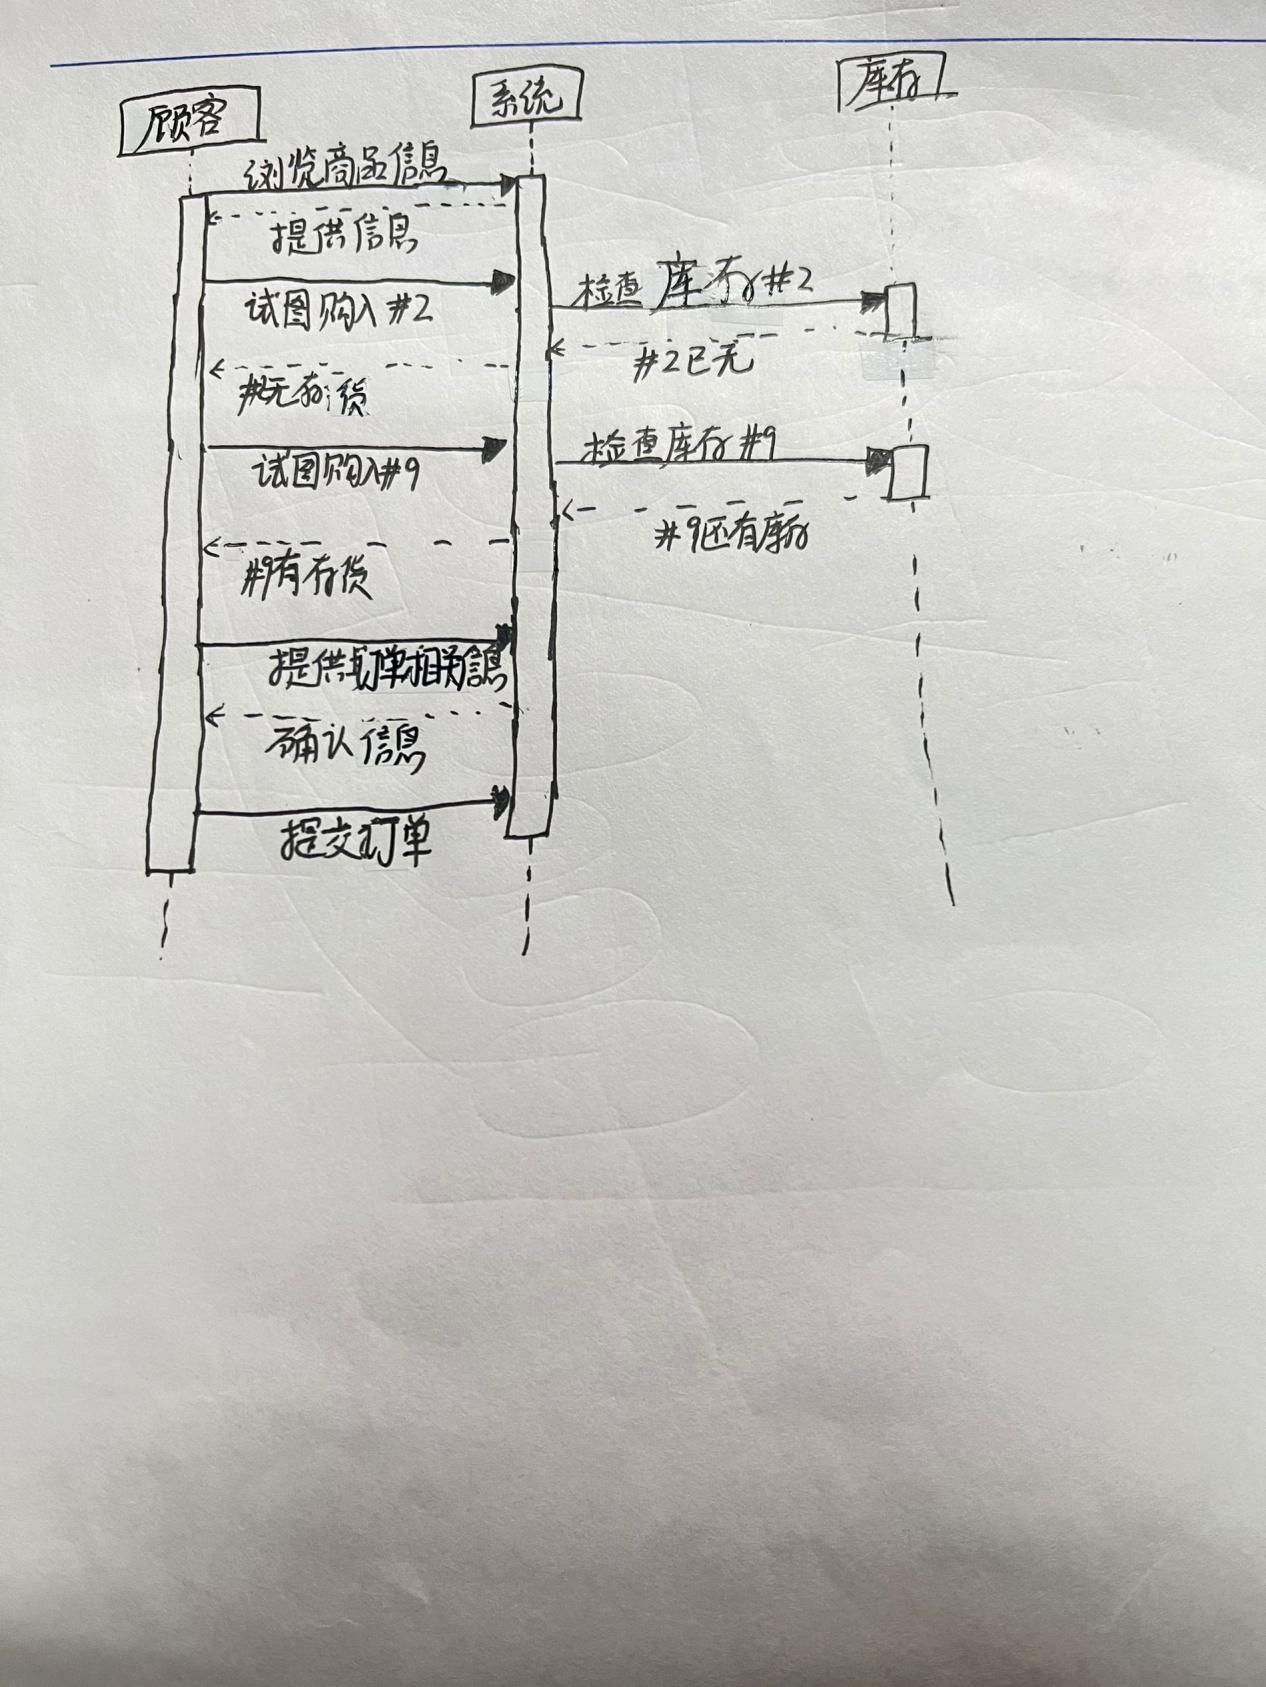 顾客
系统
库存
浏览商品信息
提供信息
试图购入#2
检查库存#2
#2已无
#2无存货
试图购入#9
检查库存#9
#9还有库存
#9有存货
提供订单相关信息
确认信息
提交订单